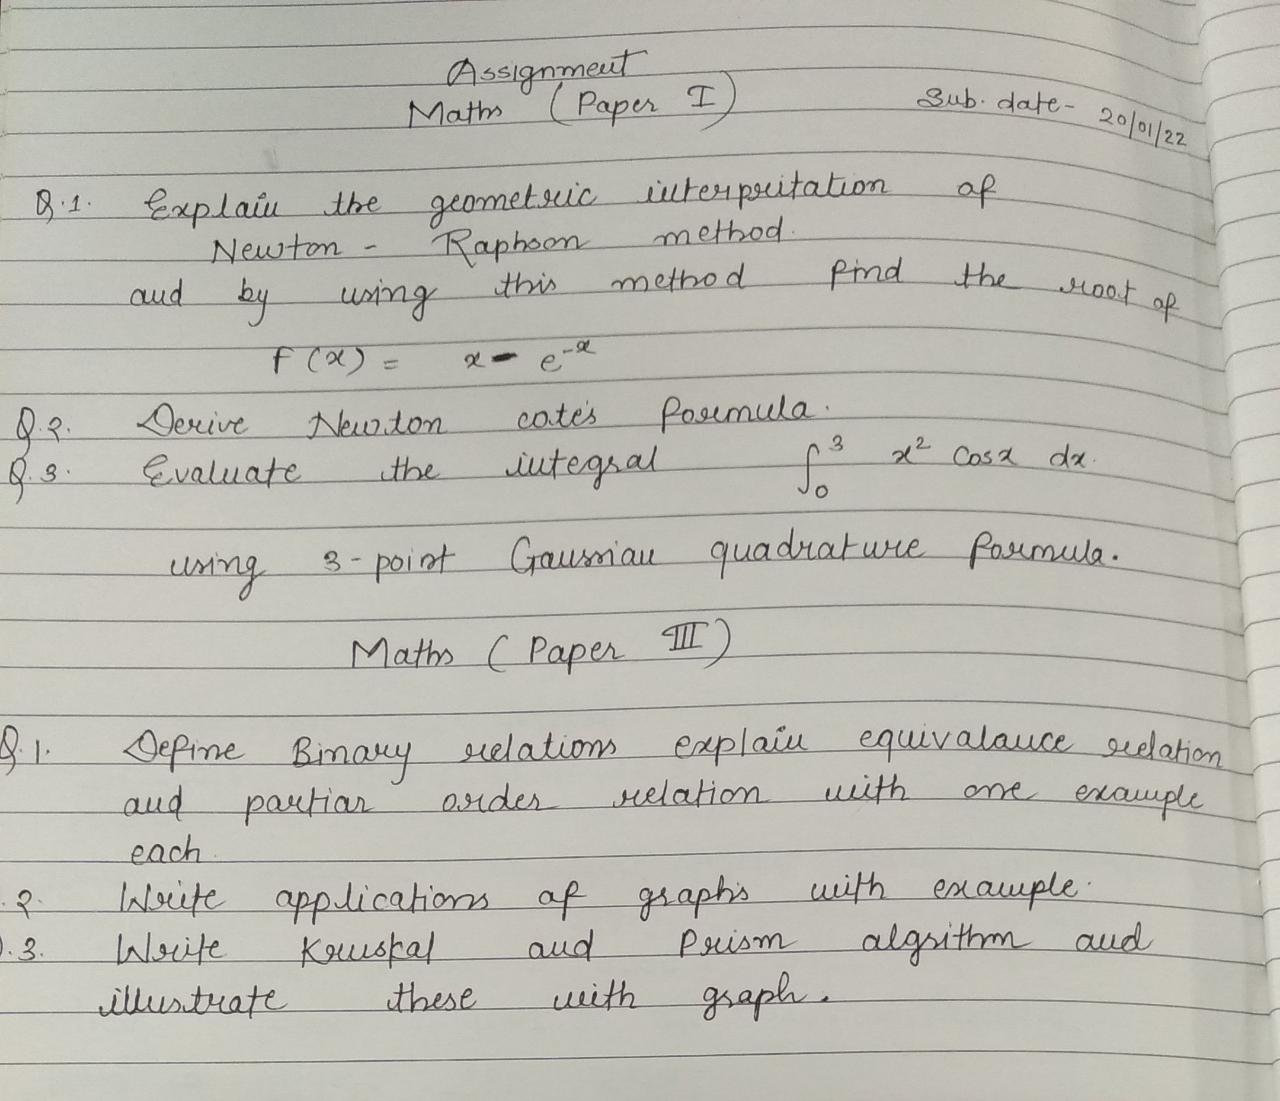 Assignment
Maths (Paper I)
Sub. date- 20/01/22
Q.1. Explain the geometric interpritation of
Newton - Raphson method.
and by using this method find the root of
f(x) = x - e^-x
Q.2. Derive Newton cote's formula.
Q.3. Evaluate the integral ∫₀³ x² cosx dx.
using 3-point Gaussian quadrature formula.
Maths (Paper III)
Q.1. Define Binary relations explain equivalance relation
and partian order relation with one example
each.
.2. Write applications of graphs with example.
).3. Write Kruskal and Prism algsithm and
illustrate these with graph.